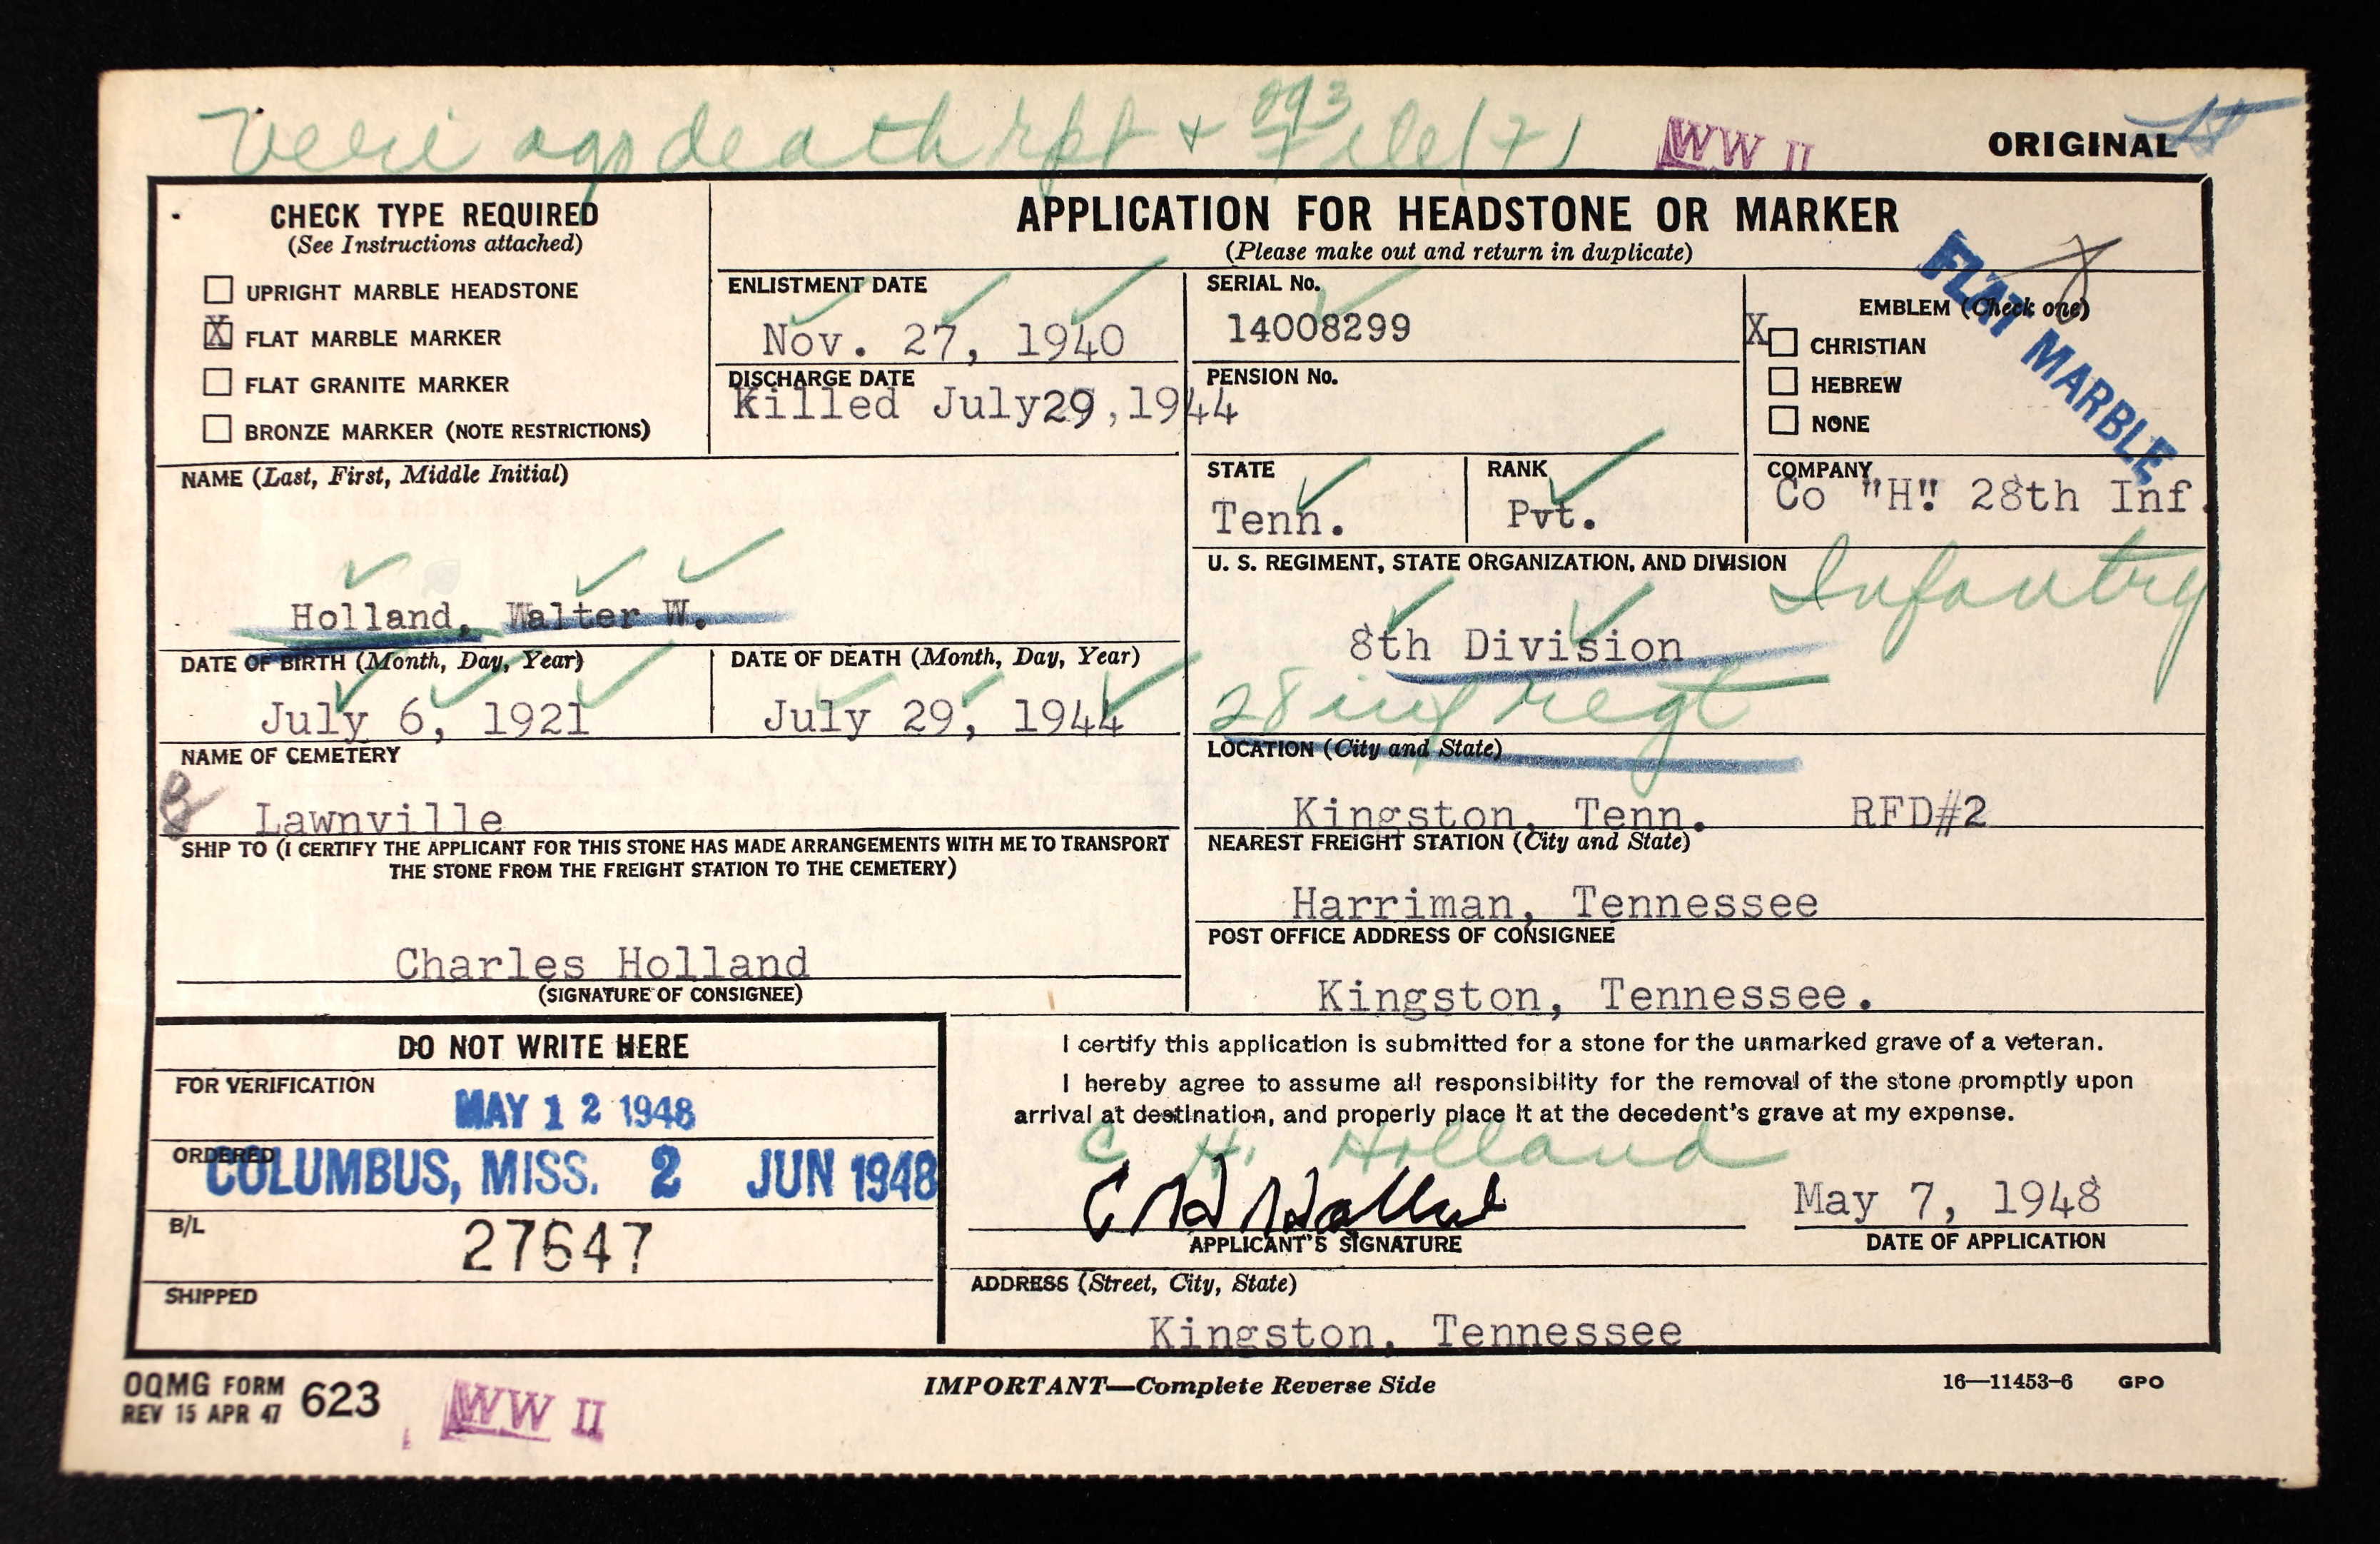 Veri ago death rpt + 293 File (7)
WW II
ORIGINAL
CHECK TYPE REQUIRED
(See Instructions attached)
UPRIGHT MARBLE HEADSTONE
X FLAT MARBLE MARKER
FLAT GRANITE MARKER
BRONZE MARKER (NOTE RESTRICTIONS)
APPLICATION FOR HEADSTONE OR MARKER
(Please make out and return in duplicate)
ENLISTMENT DATE
Nov. 27, 1940
DISCHARGE DATE
Killed July29,1944
SERIAL No.
14008299
PENSION No.
EMBLEM (Check one)
X CHRISTIAN
HEBREW
NONE
FLAT MARBLE
NAME (Last, First, Middle Initial)
Holland, Walter W.
STATE
Tenn.
RANK
Pvt.
COMPANY
Co "H" 28th Inf.
U. S. REGIMENT, STATE ORGANIZATION, AND DIVISION
Infantry
8th Division
28 inf regt
DATE OF BIRTH (Month, Day, Year)
July 6, 1921
DATE OF DEATH (Month, Day, Year)
July 29, 1944
NAME OF CEMETERY
Lawnville
LOCATION (City and State)
Kingston, Tenn. RFD#2
SHIP TO (I CERTIFY THE APPLICANT FOR THIS STONE HAS MADE ARRANGEMENTS WITH ME TO TRANSPORT
THE STONE FROM THE FREIGHT STATION TO THE CEMETERY)
Charles Holland
(SIGNATURE OF CONSIGNEE)
NEAREST FREIGHT STATION (City and State)
Harriman, Tennessee
POST OFFICE ADDRESS OF CONSIGNEE
Kingston, Tennessee.
DO NOT WRITE HERE
FOR VERIFICATION
MAY 12 1948
ORDERED
COLUMBUS, MISS. 2 JUN 1948
B/L
27647
SHIPPED
I certify this application is submitted for a stone for the unmarked grave of a veteran.
I hereby agree to assume all responsibility for the removal of the stone promptly upon
arrival at destination, and properly place it at the decedent's grave at my expense.
C. H. Holland
C H Holland
APPLICANT'S SIGNATURE
May 7, 1948
DATE OF APPLICATION
ADDRESS (Street, City, State)
Kingston, Tennessee
OQMG FORM 623
REV 15 APR 47
WW II
IMPORTANT—Complete Reverse Side
16—11453-6 GPO